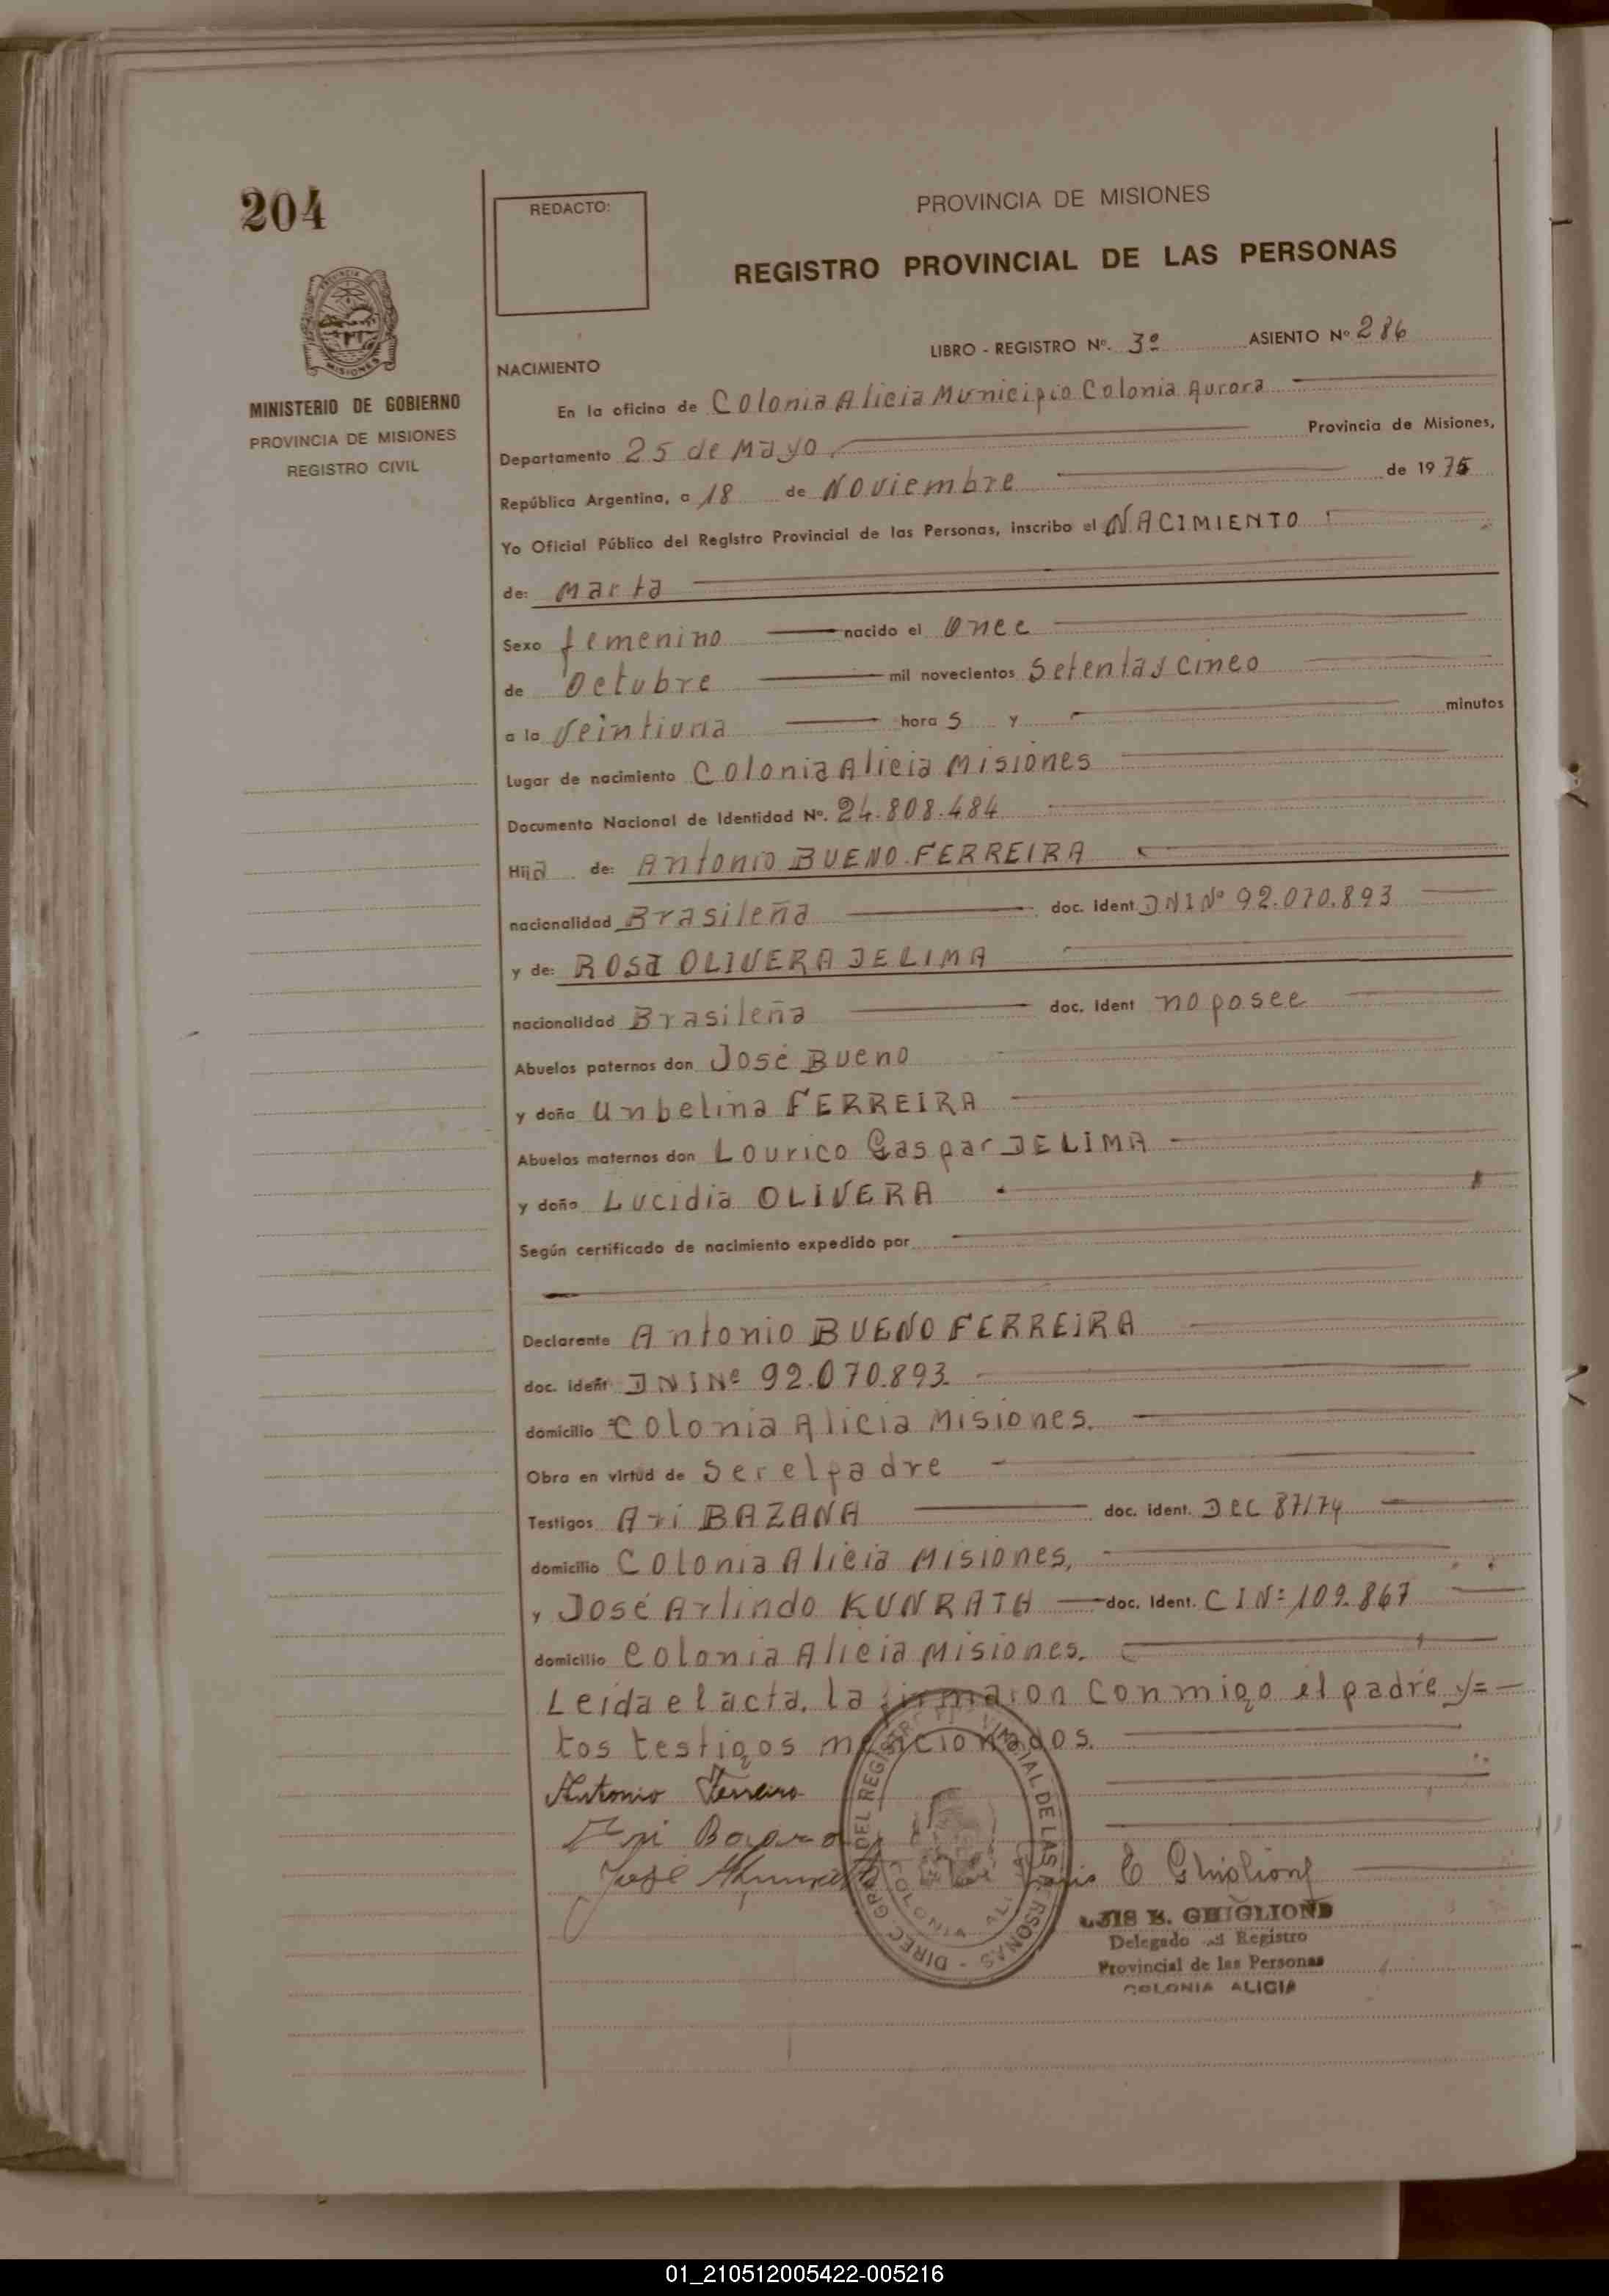 204
REDACTO:
PROVINCIA DE MISIONES
REGISTRO PROVINCIAL DE LAS PERSONAS
PROVINCIA
MISIONES
MINISTERIO DE GOBIERNO
PROVINCIA DE MISIONES
REGISTRO CIVIL
LIBRO - REGISTRO Nº. 3º ASIENTO Nº 286
NACIMIENTO
En la oficina de Colonia Alicia Municipio Colonia Aurora
Departamento 25 de Mayo Provincia de Misiones,
República Argentina, a 18 de Noviembre de 1975
Yo Oficial Público del Registro Provincial de las Personas, inscribo el NACIMIENTO
de: Marta
Sexo femenino nacido el Once
de Octubre mil novecientos Setenta y cinco
a la Veintiuna hora s y minutos
Lugar de nacimiento Colonia Alicia Misiones
Documento Nacional de Identidad Nº. 24.808.484
Hija de: Antonio BUENO FERREIRA
nacionalidad Brasileña doc. ident DNI Nº 92.070.893
y de: ROSA OLIVERA DE LIMA
nacionalidad Brasileña doc. ident no posee
Abuelos paternos don José Bueno
y doña Unbelina FERREIRA
Abuelos maternos don Lourico Gaspar DE LIMA
y doña Lucidia OLIVERA
Según certificado de nacimiento expedido por
Declarante Antonio BUENO FERREIRA
doc. ident DNI Nº 92.070.893
domicilio Colonia Alicia Misiones.
Obra en virtud de Ser el padre
Testigos Ari BAZANA doc. ident. DEC 87/74
domicilio Colonia Alicia Misiones,
y José Arlindo KUNRATH doc. ident. CI Nº 109.867
domicilio Colonia Alicia Misiones.
Leida el acta. la firmaron conmigo el padre y=
los testigos mencionados.
Antonio Ferreira
José
E Ghiglione
DIREC. GRAL. DEL REGISTRO PROVINCIAL DE LAS PERSONAS -
COLONIA ALICIA
LUIS E. GHIGLIONE
Delegado del Registro
Provincial de las Personas
COLONIA ALICIA
01_210512005422-005216